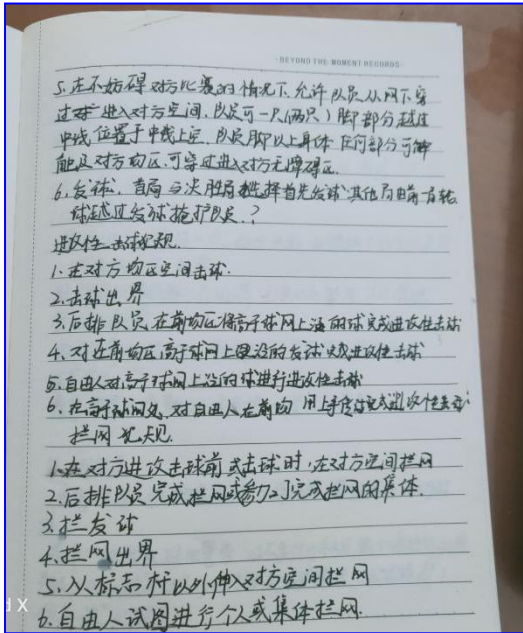 ·BEYOND THE MOMENT RECORDS·
5.在不妨碍对方比赛的情况下允许队员从网下穿
过进入对方空间,队员可一只(两只)脚部分越过
中线位置于中线上空.队员脚以上身体任何部分可触
及对方场区.可穿过进入对方无障碍区.
6.发球,首局与决胜局选择首先发球其他局由前首轮
球越过发球掩护队员.?
进攻性击球犯规.
1.在对方场区空间击球.
2.击球出界
3.后排队员在前场区将高于球网上沿的球完成进攻性击球
4.对在前场区高于球网上沿的发球完成进攻性击球
5.自由人对高于球网上沿的球进行进攻性击球
6.在高于球网处,对自由人在前场用上手传球完成进攻性击球
拦网犯规.
1.在对方进攻击球前或击球时,在对方空间拦网
2.后排队员完成拦网或参加了完成拦网的集体.
3.拦发球
4.拦网出界
5.从标志杆以外伸入对方空间拦网
6.自由人试图进行个人或集体拦网.
d X